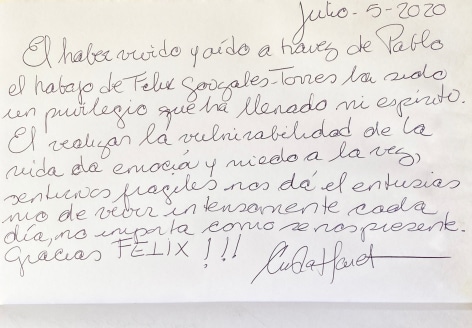 Julio-5-2020
El haber vivido y oído a travez de Pablo
el trabajo de Felix Gonzales-Torres ha sido
un privilegio que há llenado mi espíritu.
El realizar la vulnerabilidad de la
vida da emoción y miedo a la vez,
sentirnos fragiles nos dá el entusias
mo de vivir intensamente cada
día, no importa como se nos presente.
Gracias FELIX !!!